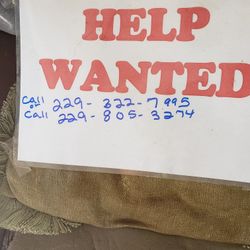 HELP
WANTED
Call 229-322-7995
or
Call 229-805-3274